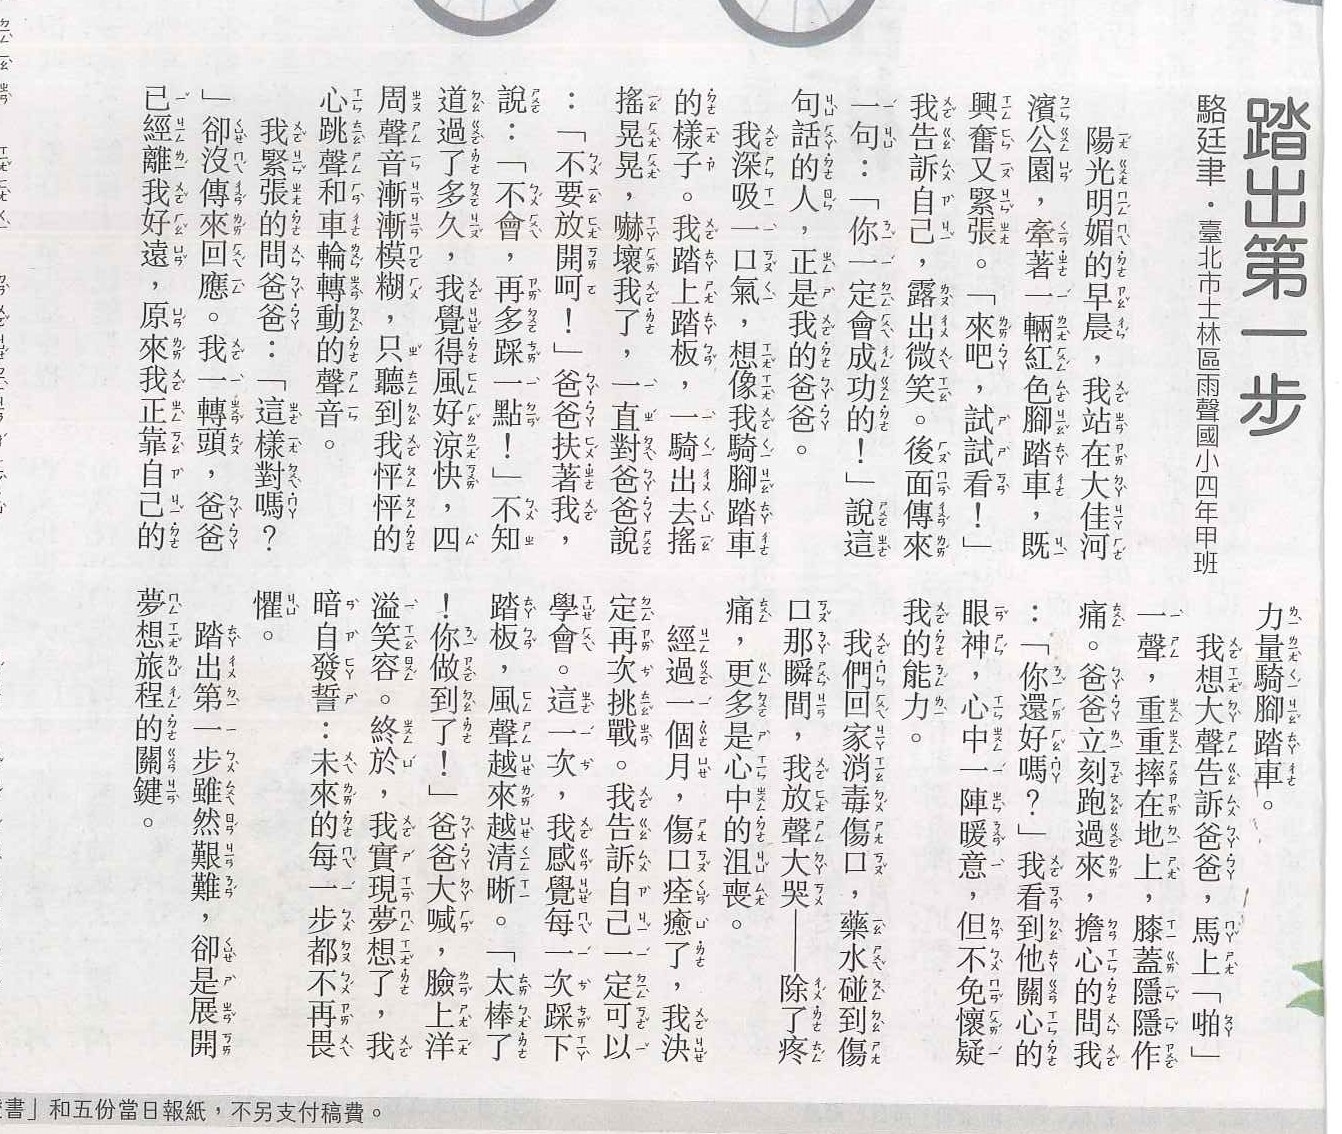 踏出第一步
駱廷聿・臺北市士林區雨聲國小四年甲班
陽光明媚的早晨，我站在大佳河
濱公園，牽著一輛紅色腳踏車，既
興奮又緊張。「來吧，試試看！」
我告訴自己，露出微笑。後面傳來
一句：「你一定會成功的！」說這
句話的人，正是我的爸爸。
我深吸一口氣，想像我騎腳踏車
的樣子。我踏上踏板，一騎出去搖
搖晃晃，嚇壞我了，一直對爸爸說
：「不要放開呵！」爸爸扶著我，
說：「不會，再多踩一點！」不知
道過了多久，我覺得風好涼快，四
周聲音漸漸模糊，只聽到我怦怦的
心跳聲和車輪轉動的聲音。
我緊張的問爸爸：「這樣對嗎？
」卻沒傳來回應。我一轉頭，爸爸
已經離我好遠，原來我正靠自己的
力量騎腳踏車。
我想大聲告訴爸爸，馬上「啪」
一聲，重重摔在地上，膝蓋隱隱作
痛。爸爸立刻跑過來，擔心的問我
：「你還好嗎？」我看到他關心的
眼神，心中一陣暖意，但不免懷疑
我的能力。
我們回家消毒傷口，藥水碰到傷
口那瞬間，我放聲大哭——除了疼
痛，更多是心中的沮喪。
經過一個月，傷口痊癒了，我決
定再次挑戰。我告訴自己一定可以
學會。這一次，我感覺每一次踩下
踏板，風聲越來越清晰。「太棒了
！你做到了！」爸爸大喊，臉上洋
溢笑容。終於，我實現夢想了，我
暗自發誓：未來的每一步都不再畏
懼。
踏出第一步雖然艱難，卻是展開
夢想旅程的關鍵。
書」和五份當日報紙，不另支付稿費。